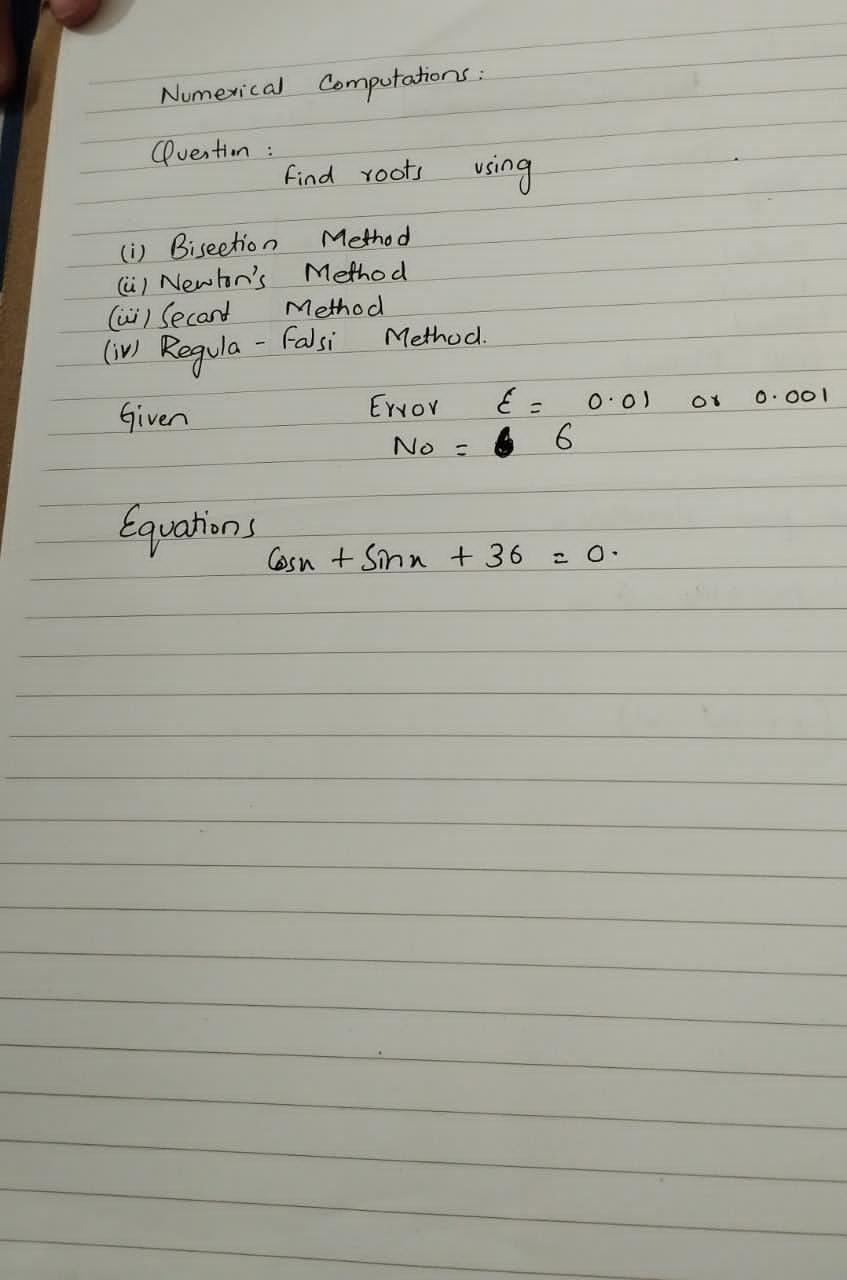 Numerical Computations:
Question:
find roots using
(i) Bisection Method
(ii) Newton's Method
(iii) Secant Method
(iv) Regula - falsi Method.
Given Error ε = 0.01 or 0.001
No = 6
Equations
Cosx + Sinx + 36 = 0.